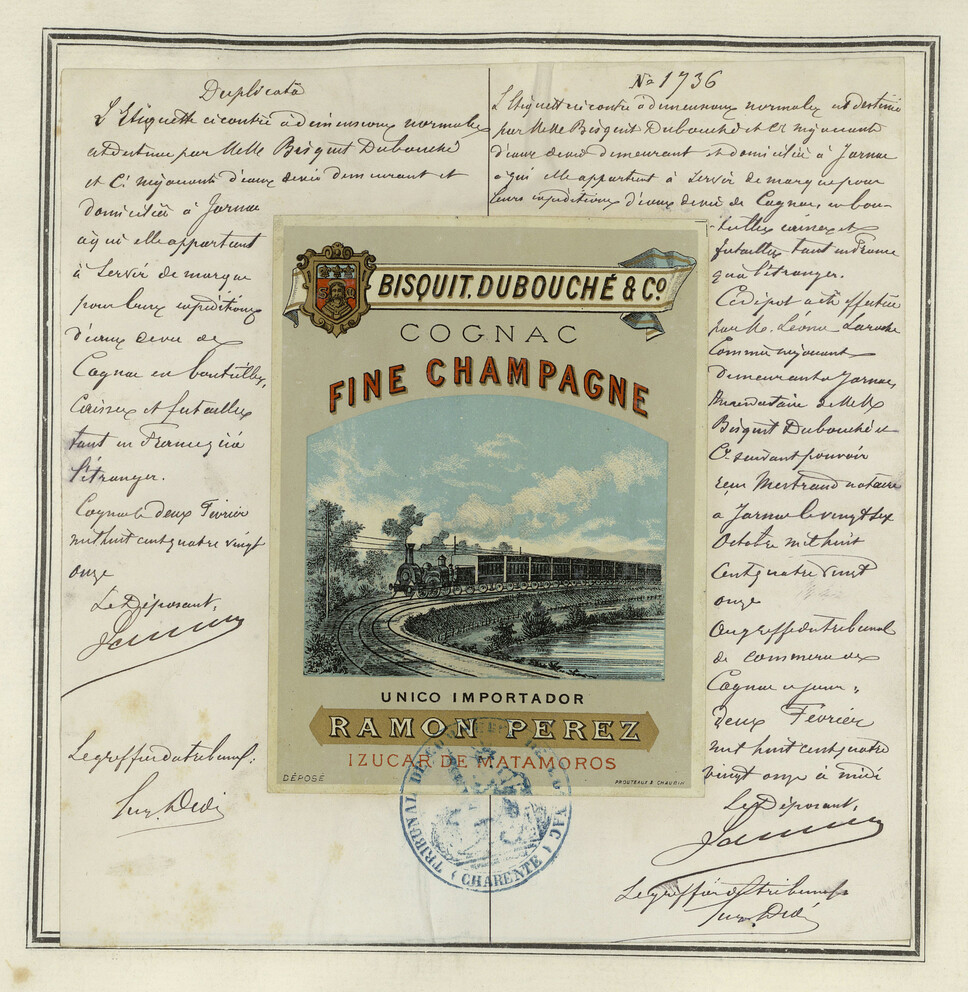 Duplicata
L'Etiquette ci contre à dimensions normales
est destinée par MMs Bisquit Dubouché
et Cie négociants d'eaux de vie demeurant et
domiciliés à Jarnac
à qui elle appartient
à servir de marque
pour leurs expéditions
d'eaux de vie de
Cognac en bouteilles,
Caisses et futailles
tant en France qu'à
l'étranger.
Cognac le deux Février
mil huit cent quatre vingt
onze
Le Déposant,
Le greffier du tribunal:
No 1736
L'Etiquette ci contre à dimensions normales est destinée
par MMs Bisquit Dubouché et Cie négociants
d'eaux de vie demeurant et domiciliés à Jarnac
à qui elle appartient à servir de marque pour
leurs expéditions d'eaux de vie de Cognac, en bou-
teilles caisses et
futailles tant en France
qu'à l'étranger.
Ce dépôt a été effectué
par M. Léonce
Commis négociant
demeurant à Jarnac,
Mandataire de MMs
Bisquit Dubouché et
Cie suivant pouvoir
reçu Mestraud notaire
à Jarnac le vingt six
Octobre mil huit
cent quatre vingt
onze
Au greffe du tribunal
de commerce de
Cognac ce jour,
deux Février
mil huit cent quatre
vingt onze à midi
Le Déposant,
Le greffier du tribunal
BISQUIT. DUBOUCHÉ & Co
COGNAC
FINE CHAMPAGNE
UNICO IMPORTADOR
RAMON PEREZ
IZUCAR DE MATAMOROS
DÉPOSÉ
PROUTEAUX & CHAUDIN
TRIBUNAL DE COMMERCE DE COGNAC (CHARENTE)